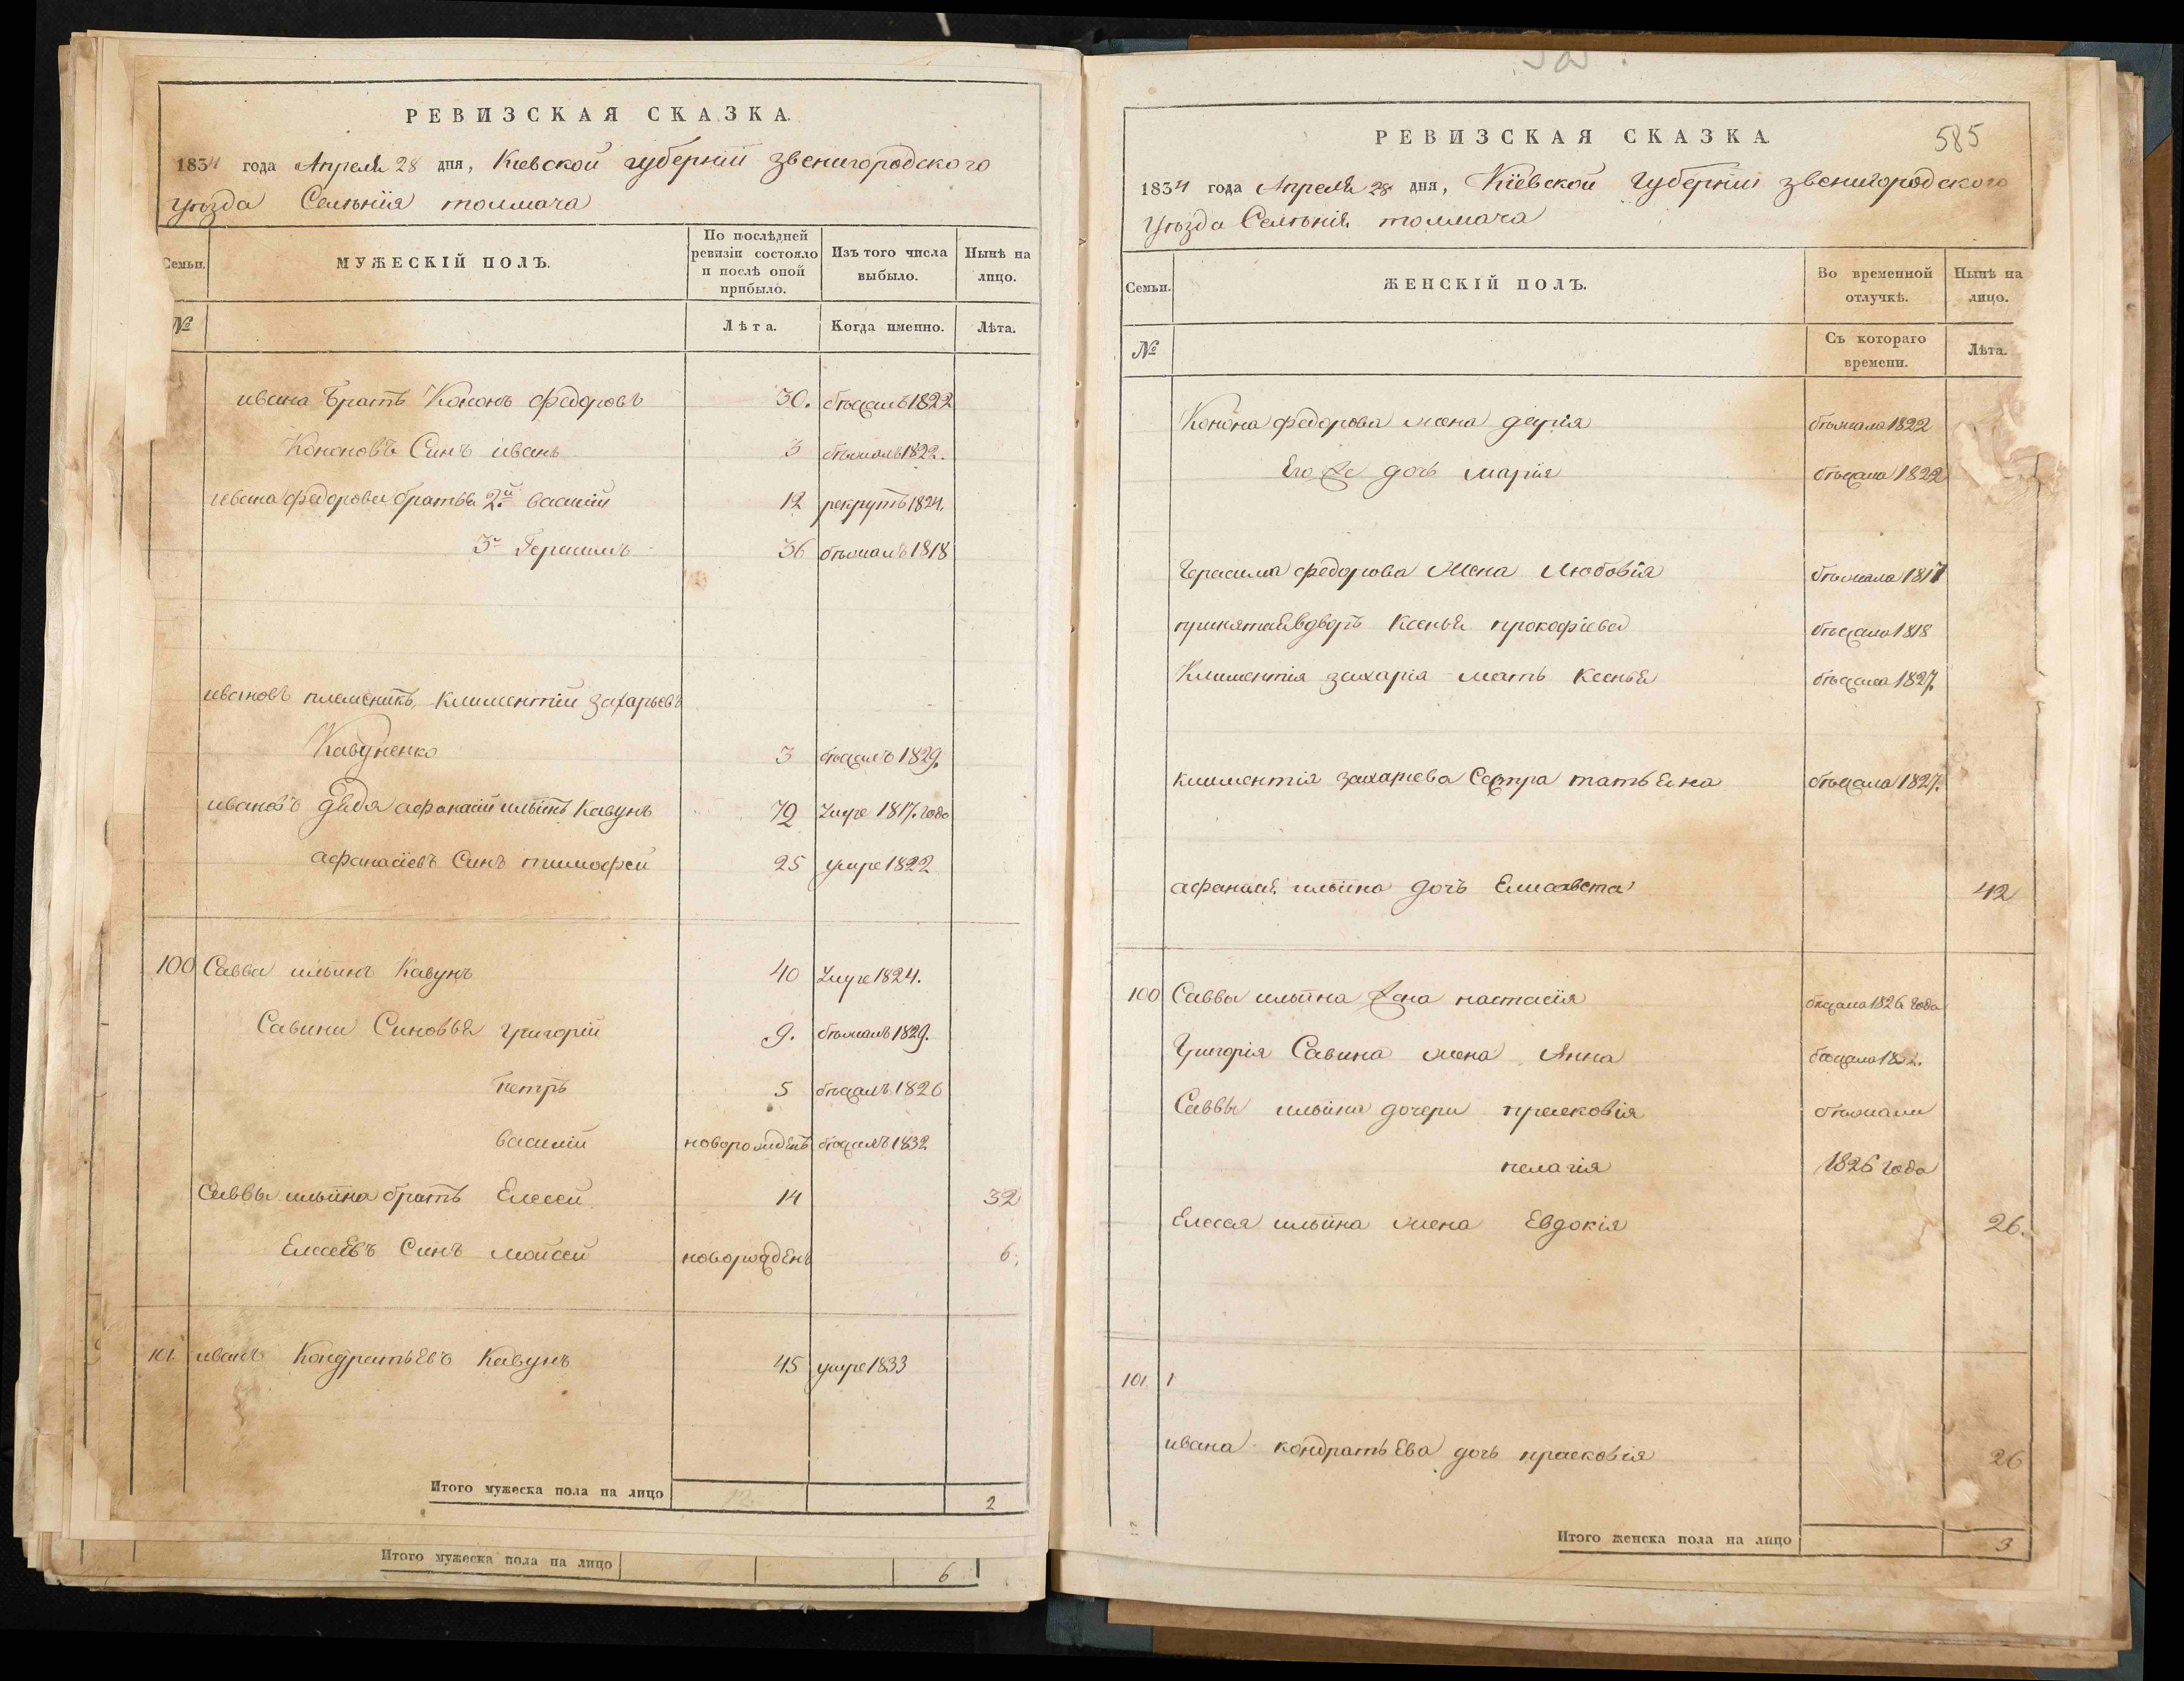 РЕВИЗСКАЯ СКАЗКА.
1834 года Апреля 28 дня, Киевской губернии звенигородского
уѣзда Селенія толмача
Семьи.
МУЖЕСКІЙ ПОЛЪ.
По послѣдней ревизіи состояло и послѣ оной прибыло.
Изъ того числа выбыло.
Нынѣ на лицо.
№
Лѣта.
Когда именно.
Лѣта.
ивана братъ Кононъ федоровъ 30. бѣжалъ 1822
Кононовъ Синъ иванъ 3 бѣжалъ 1822.
ивана федорова братья 2й василій 12 рекрутъ 1824.
3й Герасимъ 36 бѣжалъ 1818
ивановъ племеникъ климентій захарьевъ
Кавуненко 3 бѣжалъ 1829.
ивановъ дядя афанасій ильинъ Кавунъ 72 умре 1817. года
афанасіевъ Синъ тимофей 25 умре 1822
100 Савва ильинъ Кавунъ 40 умре 1824.
Савини Синовья григорій 9. бѣжалъ 1829.
петръ 5 бѣжалъ 1826
василій новорожденъ бѣжалъ 1832
Саввы ильина братъ Елесей 14 32
Елесеевъ Синъ мойсей новорожденъ 6.
101 иванъ Кондратьевъ Кавунъ 45 умре 1833
Итого мужеска пола на лицо 12. 2
Итого мужеска пола на лицо 9 6
585
РЕВИЗСКАЯ СКАЗКА
1834 года Апреля 28 дня, Кіевской губерніи звенигородского
уѣзда Селенія толмача
Семьи.
ЖЕНСКІЙ ПОЛЪ.
Во временной отлучкѣ.
Нынѣ на лицо.
№
Съ котораго времени.
Лѣта.
Конона федорова жена дарія бѣжала 1822
Его же дочь марія бѣжала 1822
Герасима федорова жена любовія бѣжала 1817
принятая въ дворъ Ксенья прокофіева бѣжала 1818
Климентія захарія мать ксенья бѣжала 1827.
климентія захарева Сестра татьяна бѣжала 1827.
афанася ильина дочь Елисавета 42
100 Саввы ильина жена настасія бѣжала 1826 года
Григорія Савина жена Анна бѣжала
Саввы ильина дочери прасковія бѣжали
пелагія 1826 года
Елесея ильина жена Евдокія 26.
101 1
ивана кондратьева дочь прасковія 26
Итого женска пола на лицо 3